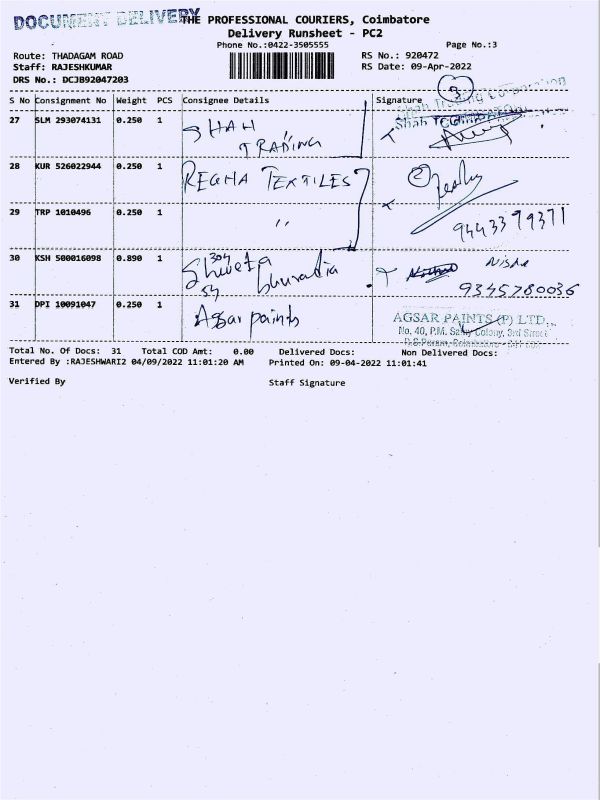 DOCUMENT DELIVERY
THE PROFESSIONAL COURIERS, Coimbatore
Delivery Runsheet - PC2
Phone No.:0422-3505555
Page No.:3
Route: THADAGAM ROAD
RS No.: 920472
Staff: RAJESHKUMAR
RS Date: 09-Apr-2022
DRS No.: DCJB92047203
S No Consignment No Weight PCS Consignee Details Signature
3
27 SLM 293074131 0.250 1 SHAH TRADING
28 KUR 526022944 0.250 1 REGHA TEXTILES
2
29 TRP 1010496 0.250 1 "
9443379371
30 KSH 500016098 0.890 1 Shweta
304
54
Nisha
9345780036
31 DPI 10091047 0.250 1 Agsar paints
AGSAR PAINTS (P) LTD.,
No. 40, P.M. Samy Colony, 3rd Street
Total No. Of Docs: 31 Total COD Amt: 0.00 Delivered Docs: Non Delivered Docs:
Entered By :RAJESHWARI2 04/09/2022 11:01:20 AM Printed On: 09-04-2022 11:01:41
Verified By Staff Signature